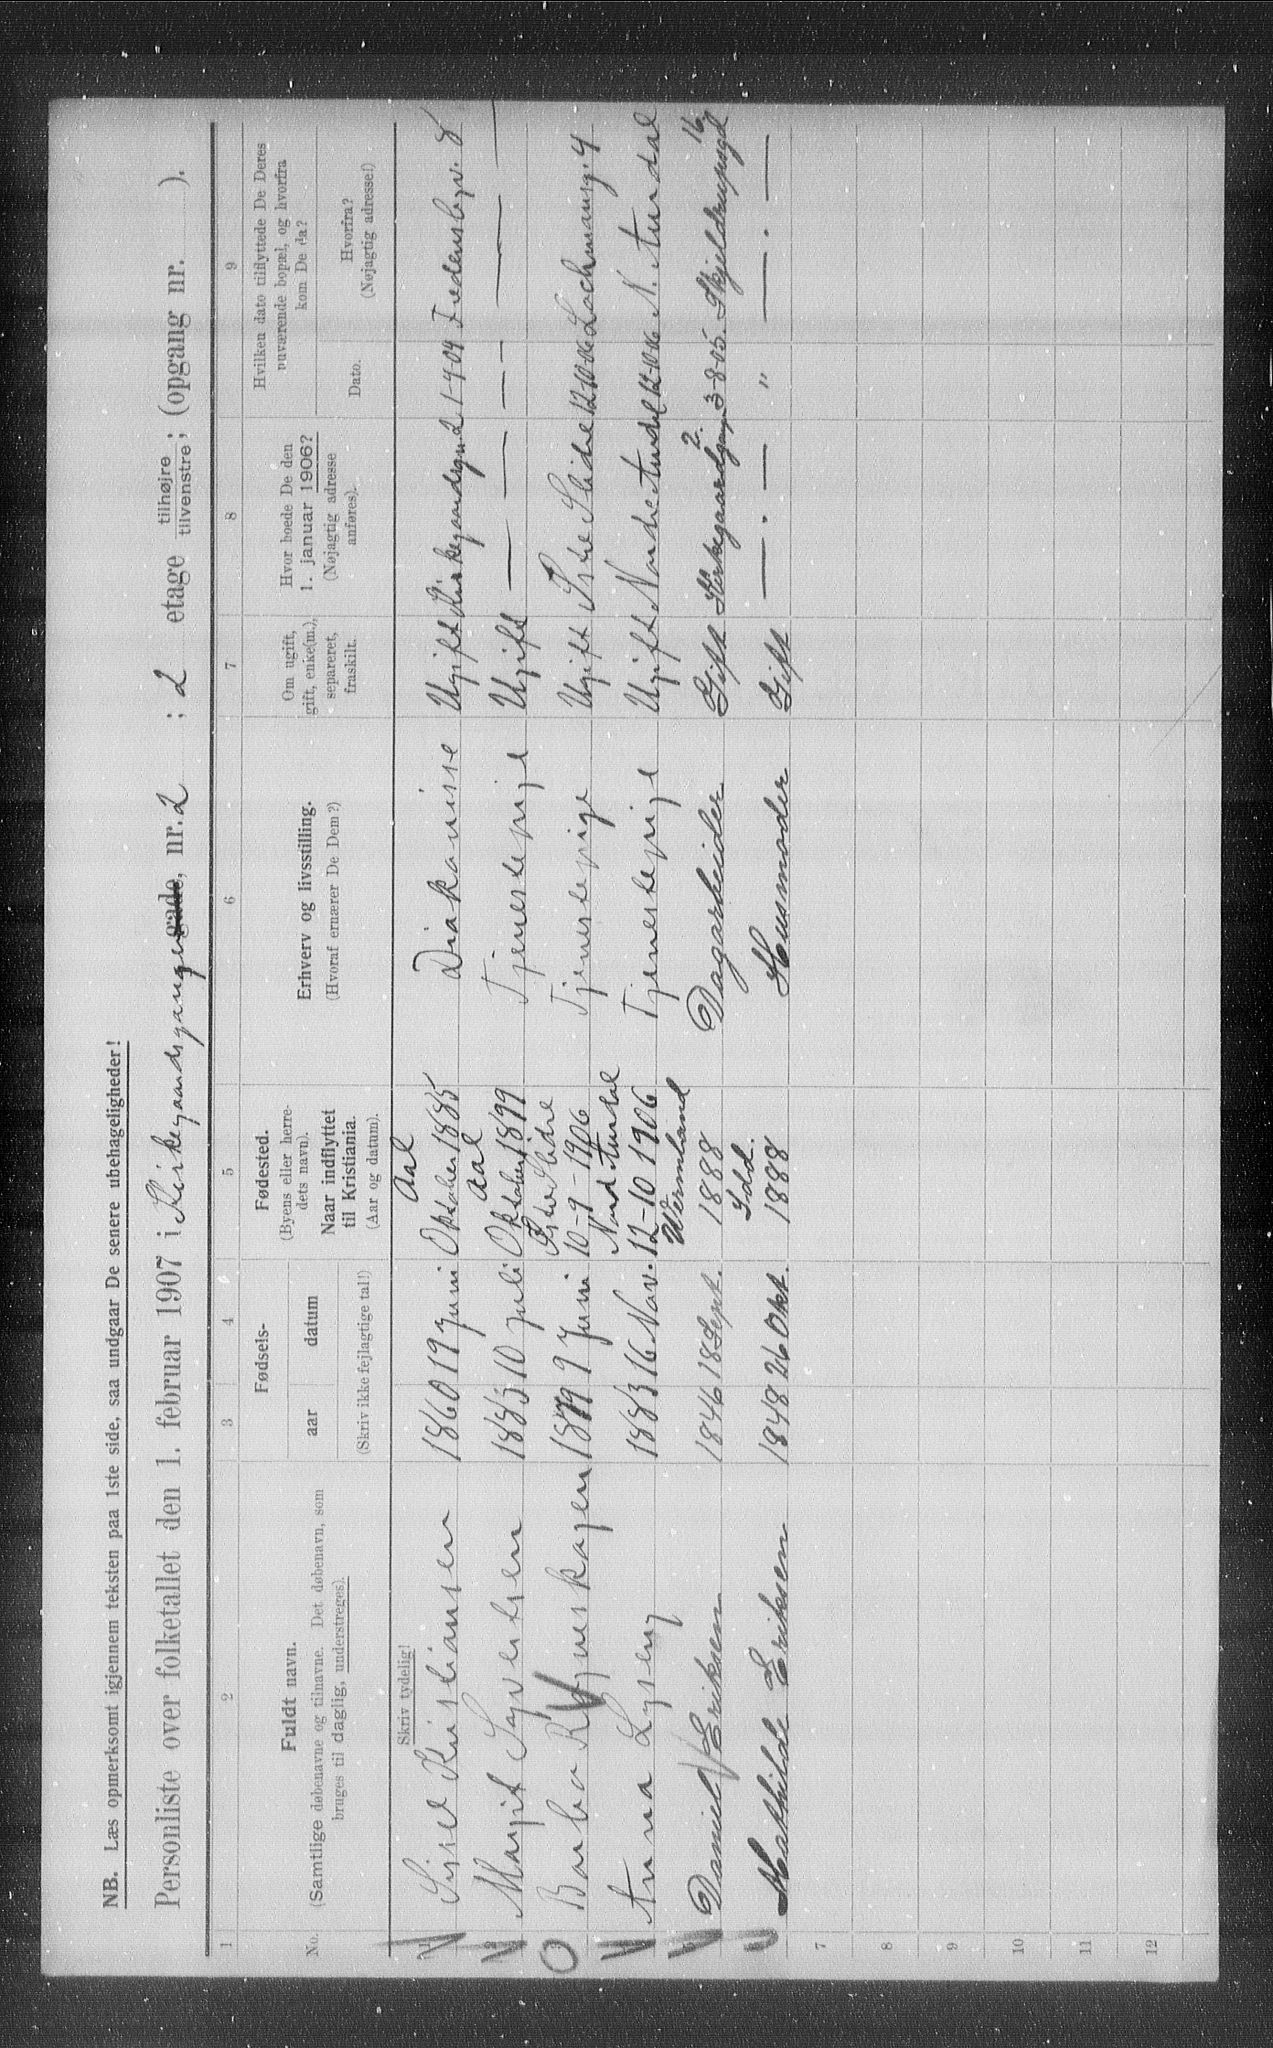 NB. Læs opmerksomt igjennem teksten paa 1ste side, saa undgaar De senere ubehageligheder!
Personliste over folketallet den 1. februar 1907 i Kirkegaardsgangen gade, nr. 2 ; 2 etage tilhøjre tilvenstre; (opgang nr. ).
1 2 3 4 5 6 7 8 9
No.
Fuldt navn.
(Samtlige døbenavne og tilnavne. Det døbenavn, som
bruges til daglig, understreges).
Fødsels-
aar datum
(Skriv ikke fejlagtige tal!)
Fødested.
(Byens eller herre-
dets navn).
Naar indflyttet
til Kristiania.
(Aar og datum).
Erhverv og livsstilling.
(Hvoraf ernærer De Dem?)
Om ugift,
gift, enke(m.),
separeret,
fraskilt.
Hvor boede De den
1. januar 1906?
(Nøjagtig adresse
anføres).
Hvilken dato tilflyttede De Deres
nuværende bopæl, og hvorfra
kom De da?
Dato.
Hvorfra?
(Nøjagtig adresse!)
Skriv tydelig!
1 Sissel Kristiansen 1860 19 Juni Aal Oktober 1885 Diakonisse Ugift Kirkegaardsgt 2 1-4 04 Fredensbgv. 8
2 Margit Syvertsen 1883 10 Juli Aal Oktober 1899 Tjenestepige Ugift — — — — — —
3 Barbro 1879 9 Juni Østre Slidre 10-9-1906 Tjenestepige Ugift Østre Slidre 12-10-06 Lachmansg. 4
Anna Lyseng 1883 16 Nov. Nord Aurdal 12-10 1906 Tjenestepige Ugift Nordre Aurdal 12-10 06 N. Aurdal
Daniel Eriksen 1846 18 Sept. Wermland 1888 Dagarbeider Gift Kirkegaardg. 2. 3-8-05. Skjeldrupsgd 16.
Mathilde Eriksen 1848 26 Okt. Idd. 1888 Husmoder Gift — . — " — . —
7
8
9
10
11
12